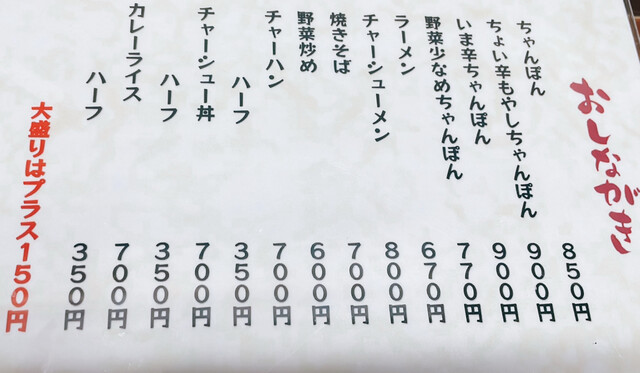 おしながき
ちゃんぽん 850円
ちょい辛もやしちゃんぽん 900円
いま辛ちゃんぽん 900円
野菜少なめちゃんぽん 770円
ラーメン 670円
チャーシューメン 800円
焼きそば 700円
野菜炒め 600円
チャーハン 700円
ハーフ 350円
チャーシュー丼 700円
ハーフ 350円
カレーライス 700円
ハーフ 350円
大盛りはプラス150円